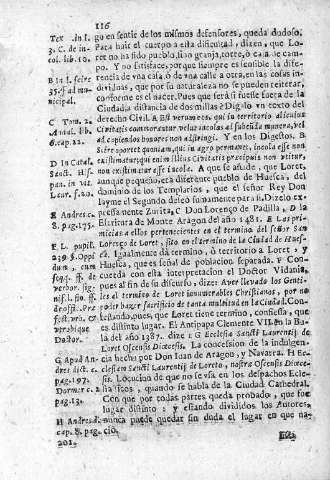 116
Tex. in l.
3. C. de in-
col. lib. 10.
B in l. fere
35. ff ad mu
nicipal.
C Tom. 2.
Annal. lib.
6. cap. 22.
D In Catal.
Sanct. His-
pan. in vit.
Laur. f. 20.
E Andres. c.
8. pag.
F L. pupil.
239. §. Oppi
dum, cum
seqq. ff. de
verbor. sig-
nif. l. fin. ff.
de offic. Præ-
fect. urb. &
verobique
Doctor.
G Apud An-
dres dict. c.
pag. 197.
Dormer c.
pag. 13.
H Andres d.
cap. 8. pag.
201.
go en sentir de los mismos defensores, queda dudoso.
Para huir el cuerpo a esta dificultad, dizen, que Lo-
ret no ha sido pueblo, sino granja, torre, ò casa de cam-
po. Y no satisface, porque siempre es sensible la dife-
rencia de vna casa ò de vna calle a otra, en las cosas in-
dividuas, que por su naturaleza no se pueden reiterar,
conforme es el nacer. Pues que serà si fuesse fuera de la
Ciudad a distancia de dos millas? Digalo vn texto del
derecho Civil. A Est verum eos, qui in territorio alicuius
Civitatis commorantur, velut incolas al subsidia munera, vel
ad capiendos honores non adstringi. Y en los Digestos. B
Scire oportet quoniam, qui in agro permanet, incola esse non
existimatur; qui enim illius civitatis præcipuis non vtitur,
non existimatur esse incola. A que se añade, que Loret,
aunque pequeño, era diferente pueblo de Huesca, del
dominio de los Templarios, que el señor Rey Don
Jayme el Segundo deleò sumamente para si. Dizelo ex-
pressamente Zurita, C Don Lorenço de Padilla, D la
Escritura de Monte Aragon del año 1481. E Las pri-
micias a ellos pertenecientes en el termino del señor San
Lorenço de Loret, sito en el termino de la Ciudad de Hues-
ca. Igualmente dà termino, ò territorio a Loret, y
Huesca, que es señal de poblacion separada. F Con-
cuerda con esta interpretacion el Doctor Vidania,
pues al fin de su discurso, dize: Aver llevado los Genti-
les al termino de Loret innumerables Christianos, por no
poder hazer sacrificio de tanta multitud en la Ciudad. Con-
testando, pues, que Loret tiene termino, confiessa, que
es distinto lugar. El Antipapa Clemente VII. en la Bu-
la del año 1387. dize: G Ecclesia Sancti Laurentij de
Loret Oscensis Diœcesis. La concession de la indulgen-
cia hecha por Don Juan de Aragon, y Navarra. H Ec-
clesiam Sancti Laurentij de Loreto, nostræ Oscensis Diœcesis.
Locucion que no se vsa en los despachos Ecle-
siasticos, quando se habla de la Ciudad Cathedral.
Con que por todas partes queda probado, que fue
lugar distinto: y estando divididos los Autores,
nunca puede quedar sin duda el lugar en que na-
ciò.